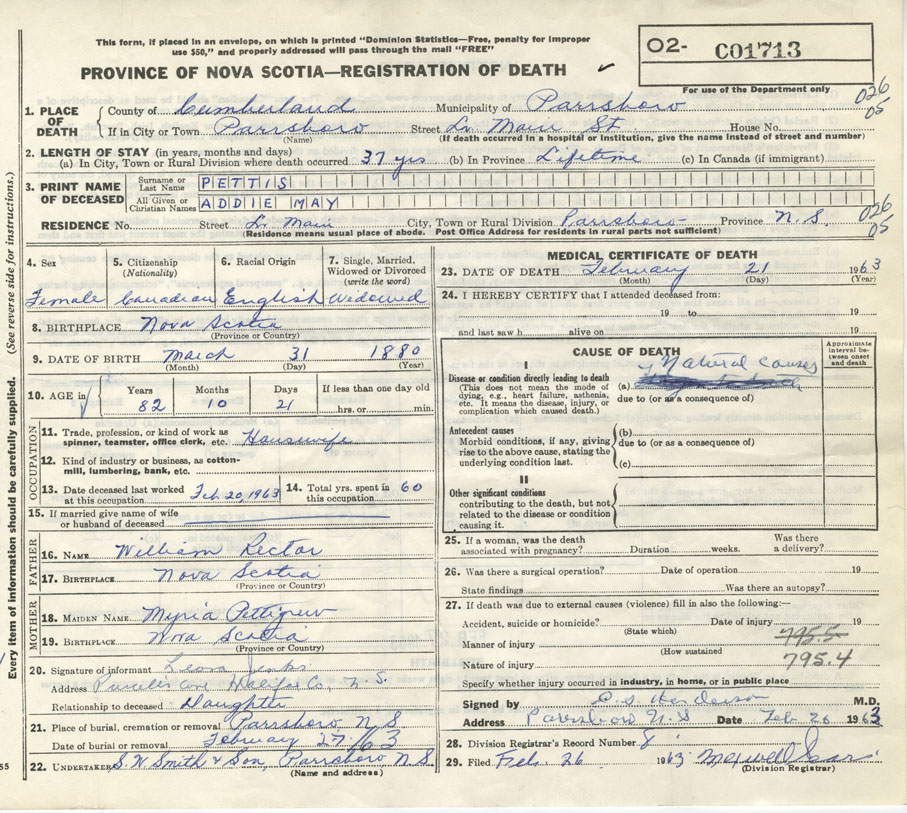 This form, if placed in an envelope, on which is printed "Dominion Statistics—Free, penalty for improper
use $50," and properly addressed will pass through the mail "FREE"
O2- C01713
PROVINCE OF NOVA SCOTIA—REGISTRATION OF DEATH ✓
For use of the Department only
026
05
1. PLACE OF DEATH { County of Cumberland Municipality of Parrsboro
If in City or Town Parrsboro Street Lr. Main St. House No.
(Name) (If death occurred in a hospital or institution, give the name instead of street and number)
2. LENGTH OF STAY (in years, months and days)
(a) In City, Town or Rural Division where death occurred 37 yrs (b) In Province Lifetime (c) In Canada (if immigrant)
3. PRINT NAME OF DECEASED { Surname or Last Name PETTIS
All Given or Christian Names ADDIE MAY
026
05
RESIDENCE No. Street Lr. Main City, Town or Rural Division Parrsboro Province N.S.
(Residence means usual place of abode. Post Office Address for residents in rural parts not sufficient)
4. Sex 5. Citizenship (Nationality) 6. Racial Origin 7. Single, Married, Widowed or Divorced (write the word)
Female Canadian English Widowed
8. BIRTHPLACE Nova Scotia
(Province or Country)
9. DATE OF BIRTH March 31 1880
(Month) (Day) (Year)
10. AGE in Years Months Days If less than one day old
82 10 21 hrs. or min.
OCCUPATION
11. Trade, profession, or kind of work as
spinner, teamster, office clerk, etc. Housewife
12. Kind of industry or business, as cotton-
mill, lumbering, bank, etc.
13. Date deceased last worked at this occupation Feb 20, 1963 14. Total yrs. spent in this occupation 60
15. If married give name of wife
or husband of deceased
FATHER
16. NAME William Rector
17. BIRTHPLACE Nova Scotia
(Province or Country)
MOTHER
18. MAIDEN NAME Myria Pettigrew
19. BIRTHPLACE Nova Scotia
(Province or Country)
20. Signature of informant Leona Jenks
Address Halifax Co., N.S.
Relationship to deceased Daughter
21. Place of burial, cremation or removal Parrsboro N.S
Date of burial or removal February 27/63
22. UNDERTAKER S.W Smith & Son, Parrsboro N.S.
(Name and address)
MEDICAL CERTIFICATE OF DEATH
23. DATE OF DEATH February 21 1963
(Month) (Day) (Year)
24. I HEREBY CERTIFY that I attended deceased from:
19 to 19
and last saw h alive on 19
CAUSE OF DEATH
Approximate interval between onset and death
I
Disease or condition directly leading to death (a) Natural Causes
(This does not mean the mode of dying, e.g., heart failure, asthenia, etc. It means the disease, injury, or complication which caused death.) due to (or as a consequence of)
Antecedent causes (b)
Morbid conditions, if any, giving rise to the above cause, stating the underlying condition last. due to (or as a consequence of)
(c)
II
Other significant conditions
contributing to the death, but not related to the disease or condition causing it.
25. If a woman, was the death associated with pregnancy? Duration weeks. Was there a delivery?
26. Was there a surgical operation? Date of operation 19
State findings Was there an autopsy?
27. If death was due to external causes (violence) fill in also the following:—
Accident, suicide or homicide? Date of injury 19
(State which)
Manner of injury 795.5
(How sustained)
Nature of injury 795.4
Specify whether injury occurred in industry, in home, or in public place
Signed by Henderson M.D.
Address Parrsboro N.S Date Feb 26 1963
28. Division Registrar's Record Number 8
29. Filed Feb. 26 1963
(Division Registrar)
Every item of information should be carefully supplied. (See reverse side for instructions.)
55